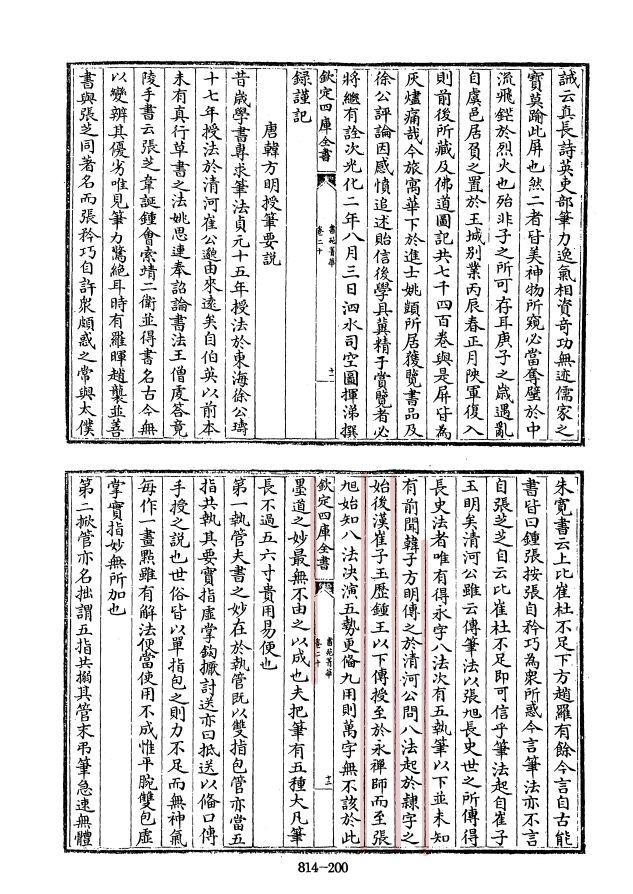 誡云真長詩英吏部筆力逸氣相資奇功無迹儒家之
寶莫踰此屏也然二者皆美神物所窺必當奪壁於中
流飛鎹於烈火也殆非子之所可存耳庚子之歲遇亂
自虞邑居負之置於王城別業丙辰春正月陜軍復入
則前後所藏及佛道圖記共七千四百卷與是屏皆為
灰燼痛哉今旅寓華下於進士姚顗所居獲覽書品及
徐公評論因感憤追述貽信後學且冀精于賞覽者必
將繼有詮次光化二年八月三日泗水司空圖揮涕撰
欽定四庫全書
書苑菁華
卷二十
十一
錄謹記
唐韓方明授筆要說
昔歲學書專求筆法貞元十五年授法於東海徐公璹
十七年授法於清河崔公邈由來遠矣自伯英以前本
未有真行草書之法姚思連奉詔論書法王僧虔答竟
陵手書云張芝韋誕鍾會索靖二衛並得書名古今無
以變辨其優劣唯見筆力驚絕耳時有羅暉趙襲並善
書與張芝同著名而張矜巧自許衆頗惑之常與太僕
朱寛書云上比崔杜不足下方趙羅有餘今言自古能
書皆曰鍾張按張自矜巧為衆所惑今言筆法亦不言
自張芝芝自云比崔杜不足即可信乎筆法起自崔子
玉明矣清河公雖云傳筆法以張旭長史世之所傳得
長史法者唯有得永字八法次有五執筆以下並未知
有前聞韓子方明傳之於清河公問八法起於𨽻字之
始後漢崔子玉歴鍾王以下傳授至於永禪師而至張
旭始知八法次演五勢更備九用則萬字無不該於此
欽定四庫全書
書苑菁華
卷二十
十二
墨道之妙最無不由之以成也夫把筆有五種大凡筆
長不過五六寸貴用易便也
第一執管夫書之妙在於執管既以雙指包管亦當五
指共執其要實指虚掌鈎擫訐送亦曰抵送以備口傳
手授之說也世俗皆以單指包之則力不足而無神氣
每作一畫㸃雖有解法便當使用不成惟平腕雙包虚
掌實指妙無所加也
第二掀管亦名拙謂五指共搦其管末弔筆急速無體
814-200